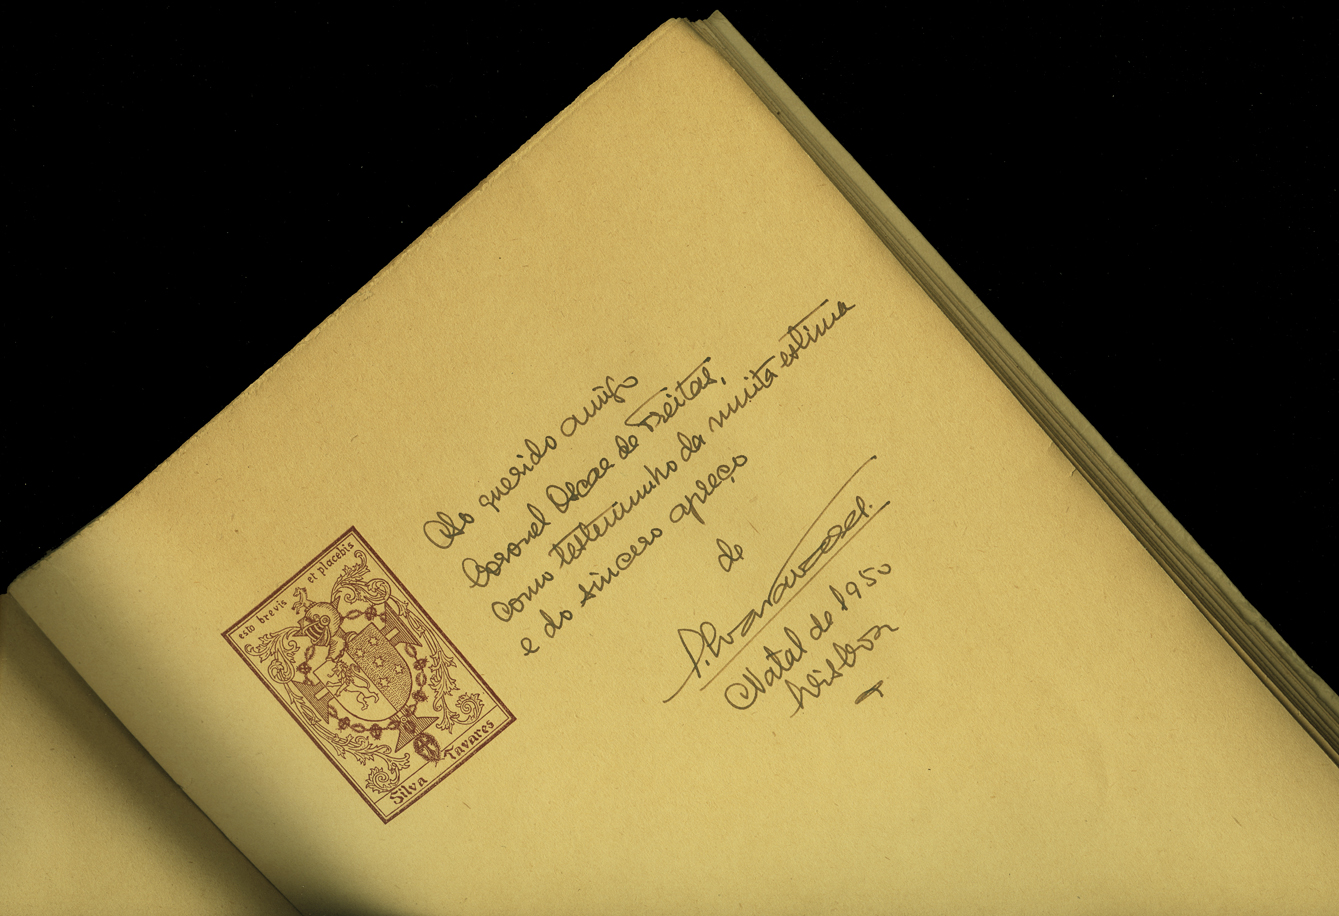 esto brevis et placebis
Silva Tavares
Ao querido amigo
Coronel Oscar de Freitas,
como testemunho da muita estima
e do sincero apreço
de
Silva Tavares.
Natal de 1950
Lisboa